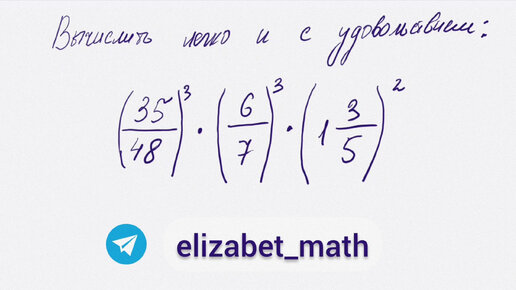 Вычислить легко и с удовольствием:
(35/48)³ · (6/7)³ · (1 3/5)²
elizabet_math